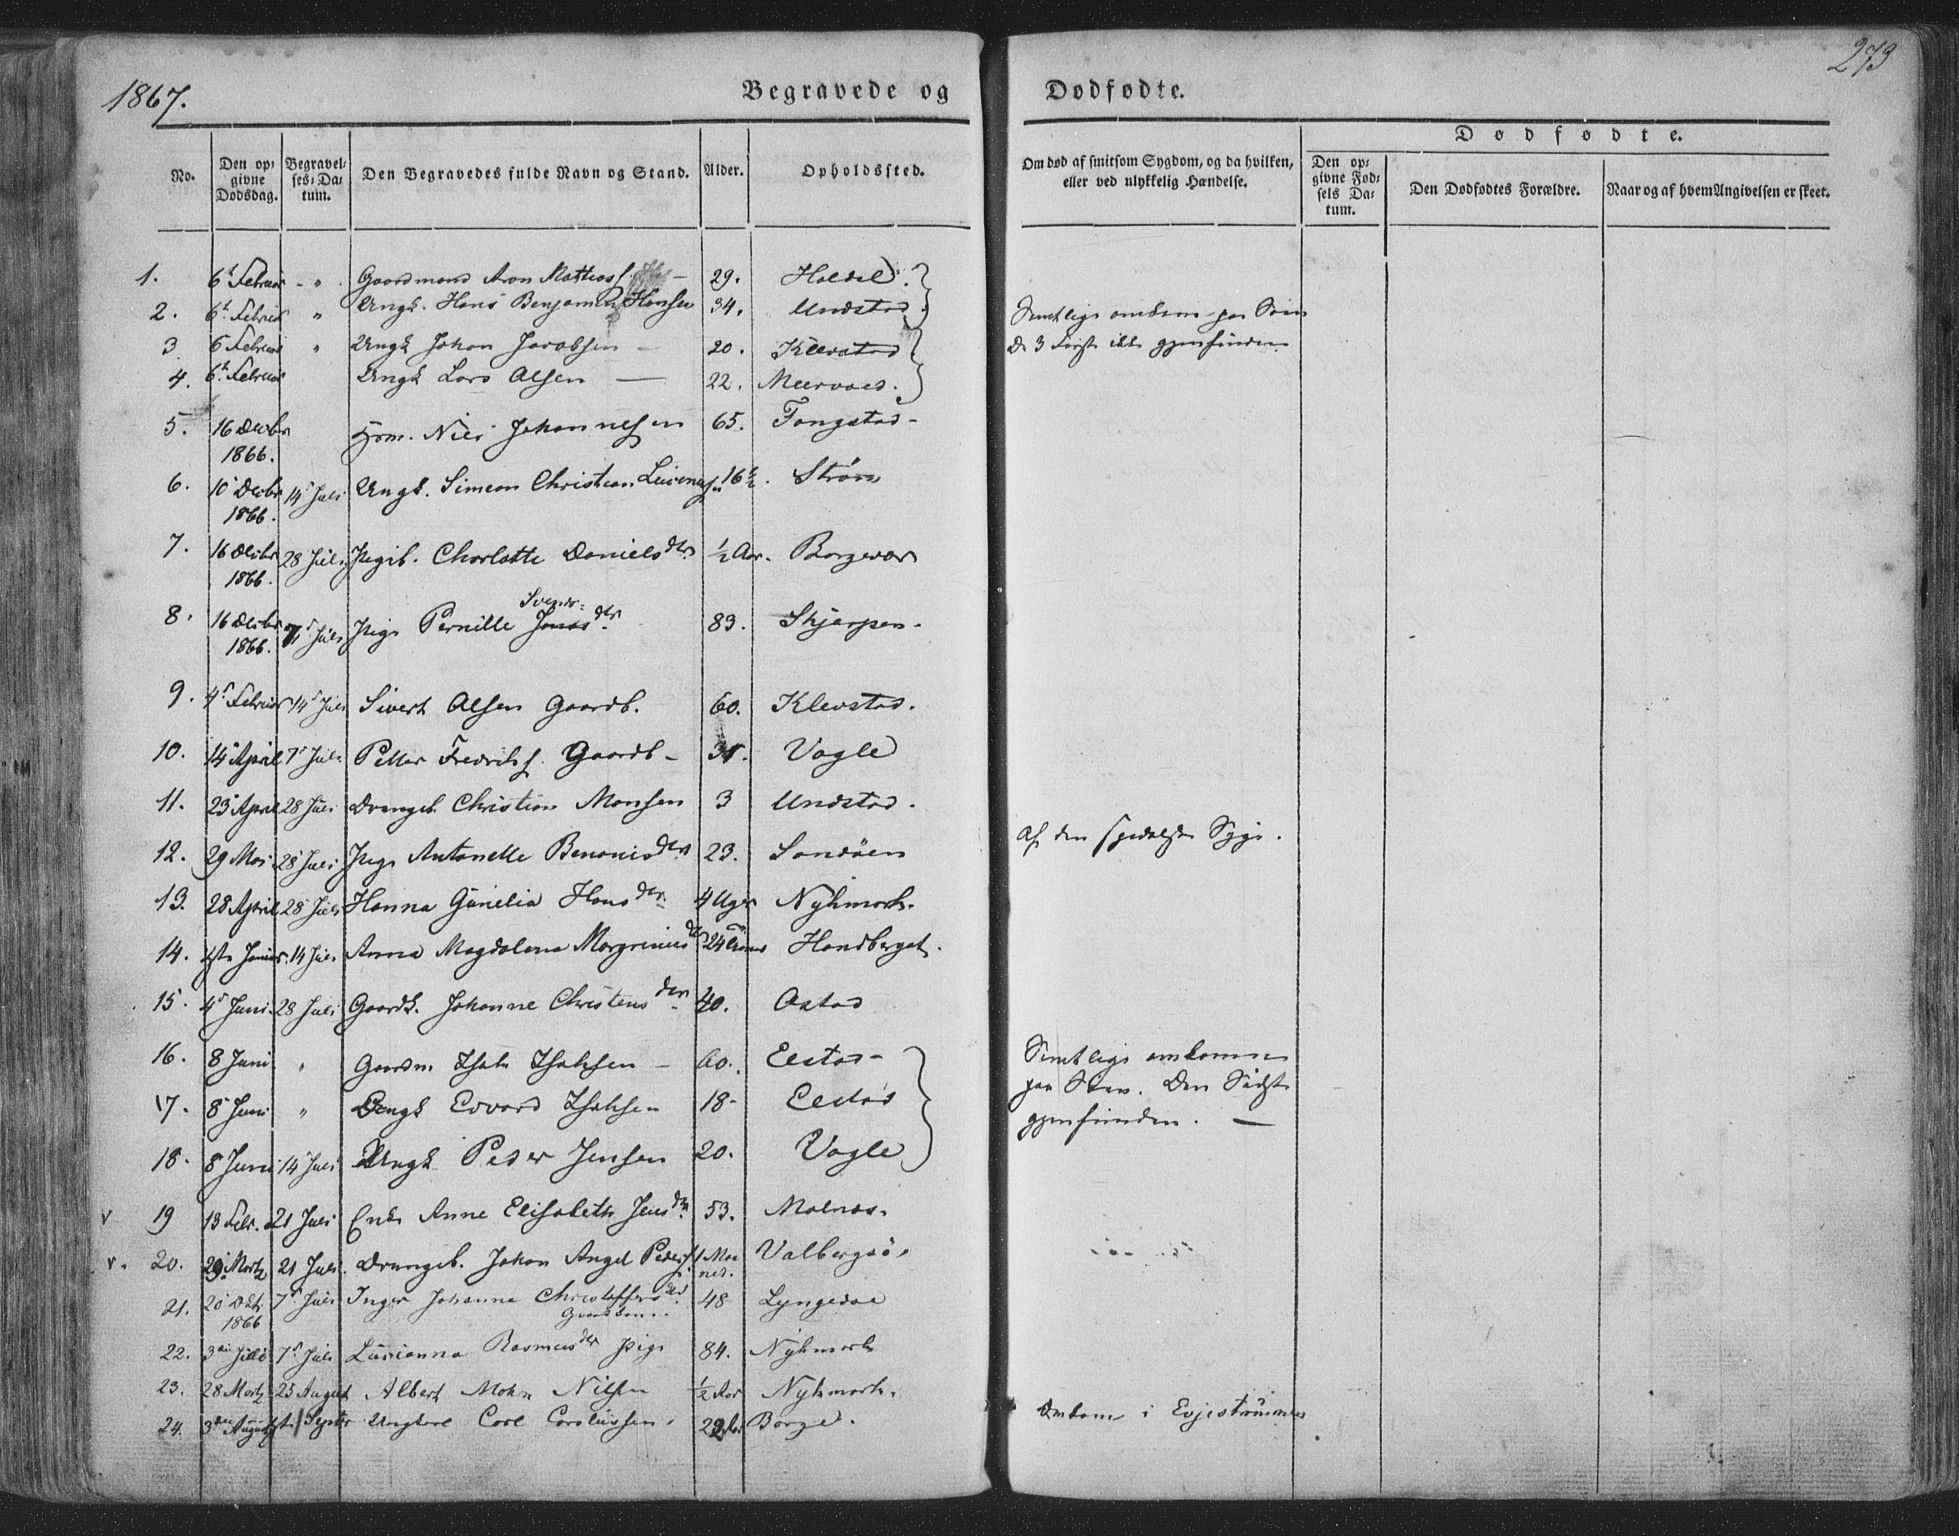 1867.
Begravede og Dødfødte.
273
No.
Den opgivne Dødsdag.
Begravelses-Datum.
Den Begravedes fulde Navn og Stand.
Alder.
Opholdssted.
Om død af smitsom Sygdom, og da hvilken, eller ved ulykkelig Hændelse.
Dødfødte.
Den opgivne Fødsels Datum.
Den Dødfødtes Forældre.
Naar og af hvem Angivelsen er skeet.
1. 6t Februar - " Gaardmand Aron Mathiass. 29. Holdal
2. 6t Februar " Ungk. Hans Benjamin Hansen 34. Undstad.
Samtlige omkom paa Søen
3 6 Februar " Ungk Johan Jacobsen — 20. Klevstad
De 3 første ikke gjenfunden
4. 6t Februar Ungk Lars Olsen — 22. Meervold.
5. 16 Decbr 1866. Huusm. Niels Johannessen 65. Tangstad-
6. 10 Decbr 1866. 14 Juli Ungk. Simeon Christian 16½. Strøm
7. 16 Decbr 1866. 28 Juli Pigeb. Charlotte Danielsdtr ½ Aar. Borgevær
8. 16 Decbr 1866. 7 Juli Pige Pernille Svensdtr 83. Skjerpen.
9. 4d Februar 14d Juli Sivert Olsen Gaardb. 60. Klevstad.
10. 14 April 7d Juli Petter Fredriks. Gaardb- Vagle
11. 23 April 28 Juli Drengeb. Christian Monsen 3 Undstad.
12. 29 Mai 28 Juli Pige Antonette Benonisdtr 23. Sandøen
Af den spedalske Syge.
13. 28 April 28 Juli Hanna Gunelia Hansdtr. 4 Uger Nykmark.
14. Juni 14 Juli Anna Magdalena Margreniusdtr 24 Timer Handberget.
15. 4d Juni 28 Juli Gaardk. Johanne Christensdtr 40. Ostad
16. 8 Juni " Gaardm Isak Isaksen — 60. Eestad-
Samtlige omkomne
17. 8 Juni " Ungk Edvard Isaksen 18- Eestad
paa Søen. Den Sidste
gjenfunden. —
18. 8 Juni 14 Juli Ungk Peder Jensen 20. Vagle
19 13 Febr. 21 Juli Enke Anne Elisabeth Jensdtr 53. Malnæs.
20. 29 Martz 21 Juli. Drengeb. Johan Angel Peders. 1 Maaned. Valbergsø.
21. 20 Okt. 1866 7d Juli Inger Johanna Christoffersdtr 48 Lyngedal
22. 3die Juli 7d Juli Lucianna Rasmusdtr Pige 84. Nykmark
23. 28 Martz 25 August Albert Mohn Nilsen ½ Aar Nykmark.
24. 3die August 1 Septr Ungkarl Carl Corneliussen. Borge.
Omkom i Evjestrømmen